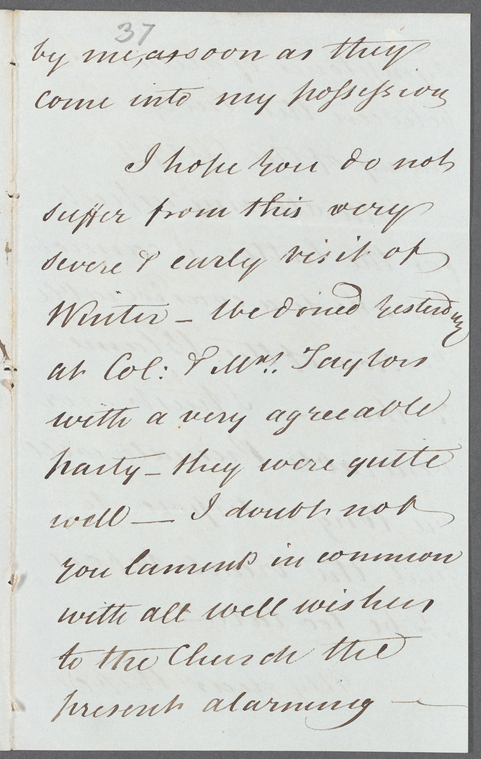 37
by me, as soon as they
come into my possession
I hope you do not
suffer from this very
severe & early visit of
Winter - We dined yesterday
at Col: & Mrs. Taylors
with a very agreeable
party - they were quite
well - I doubt not
you lament in common
with all well wishers
to the Church the
present alarming -